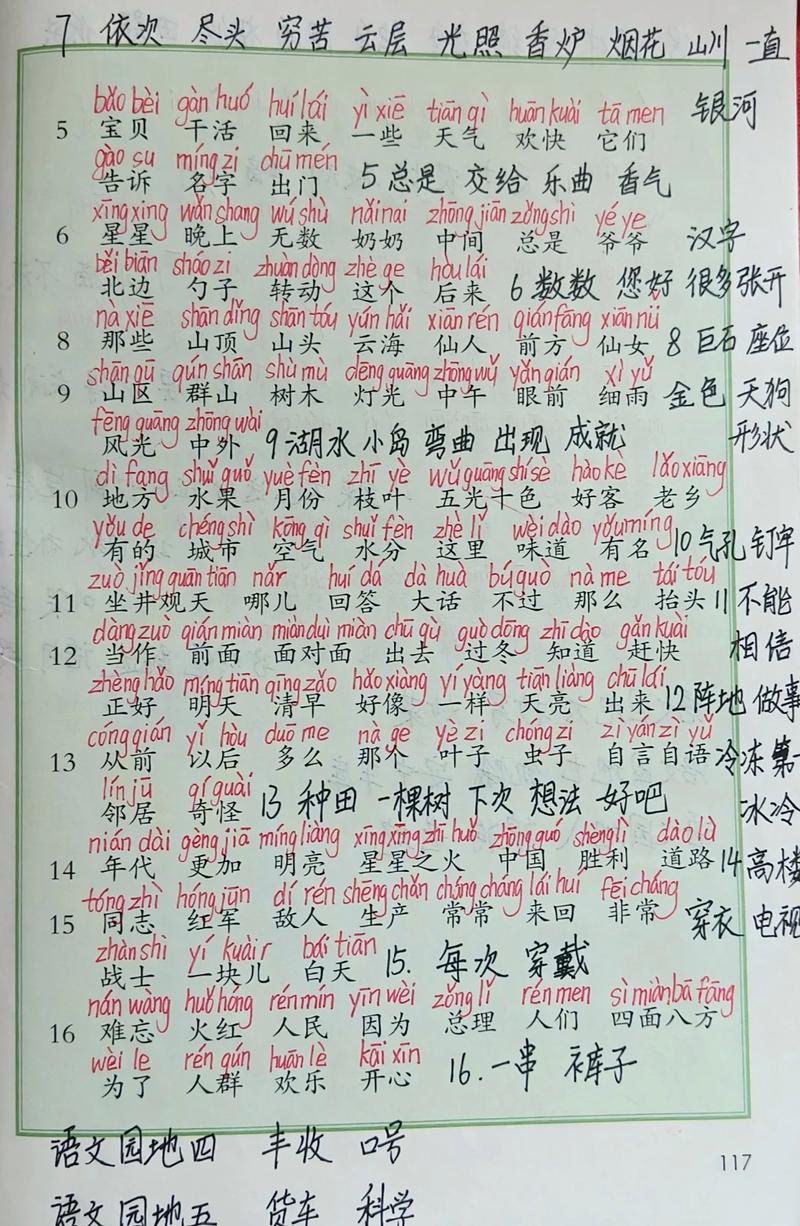 7 依次 尽头 穷苦 云层 光照 香炉 烟花 山川 一直
bǎo bèi gàn huó huí lái yì xiē tiān qì huān kuài tā men
5 宝贝 干活 回来 一些 天气 欢快 它们 银河
gào su míng zi chū mén
告诉 名字 出门 5 总是 交给 乐曲 香气
xīng xing wǎn shang wú shù nǎi nai zhōng jiān zǒng shì yé ye
6 星星 晚上 无数 奶奶 中间 总是 爷爷 汉字
běi biān sháo zi zhuàn dòng zhè ge hòu lái
北边 勺子 转动 这个 后来 6 数数 您好 很多 张开
nà xiē shān dǐng shān tóu yún hǎi xiān rén qián fāng xiān nǚ
8 那些 山顶 山头 云海 仙人 前方 仙女 8 巨石 座位
shān qū qún shān shù mù dēng guāng zhōng wǔ yǎn qián xì yǔ
9 山区 群山 树木 灯光 中午 眼前 细雨 金色 天狗
fēng guāng zhōng wài
风光 中外 9 湖水 小岛 弯曲 出现 成就 形状
dì fang shuǐ guǒ yuè fèn zhī yè wǔ guāng shí sè hào kè lǎo xiāng
10 地方 水果 月份 枝叶 五光十色 好客 老乡
yǒu de chéng shì kōng qì shuǐ fèn zhè lǐ wèi dào yǒu míng
有的 城市 空气 水分 这里 味道 有名 10 气孔 钉牢
zuò jǐng guān tiān nǎr huí dá dà huà bú guò nà me tái tóu
11 坐井观天 哪儿 回答 大话 不过 那么 抬头 11 不能
dàng zuò qián miàn miàn duì miàn chū qù guò dōng zhī dào gǎn kuài
12 当作 前面 面对面 出去 过冬 知道 赶快 相信
zhèng hǎo míng tiān qīng zǎo hǎo xiàng yí yàng tiān liàng chū lái
正好 明天 清早 好像 一样 天亮 出来 12 阵地 做事
cóng qián yǐ hòu duō me nà ge yè zi chóng zi zì yán zì yǔ
13 从前 以后 多么 那个 叶子 虫子 自言自语 冷冻 第一
lín jū qí guài
邻居 奇怪 13 种田 一棵树 下次 想法 好吧 冰冷
nián dài gèng jiā míng liàng xīng xīng zhī huǒ zhōng guó shèng lì dào lù
14 年代 更加 明亮 星星之火 中国 胜利 道路 14 高楼
tóng zhì hóng jūn dí rén shēng chǎn cháng cháng lái huí fēi cháng
15 同志 红军 敌人 生产 常常 来回 非常 穿衣 电视
zhàn shì yí kuàir bái tiān
战士 一块儿 白天 15. 每次 穿戴
nán wàng huǒ hóng rén mín yīn wèi zǒng lǐ rén men sì miàn bā fāng
16 难忘 火红 人民 因为 总理 人们 四面八方
wèi le rén qún huān lè kāi xīn
为了 人群 欢乐 开心 16. 一串 裤子
语文园地四 丰收 口号
117
语文园地五 货车 科学